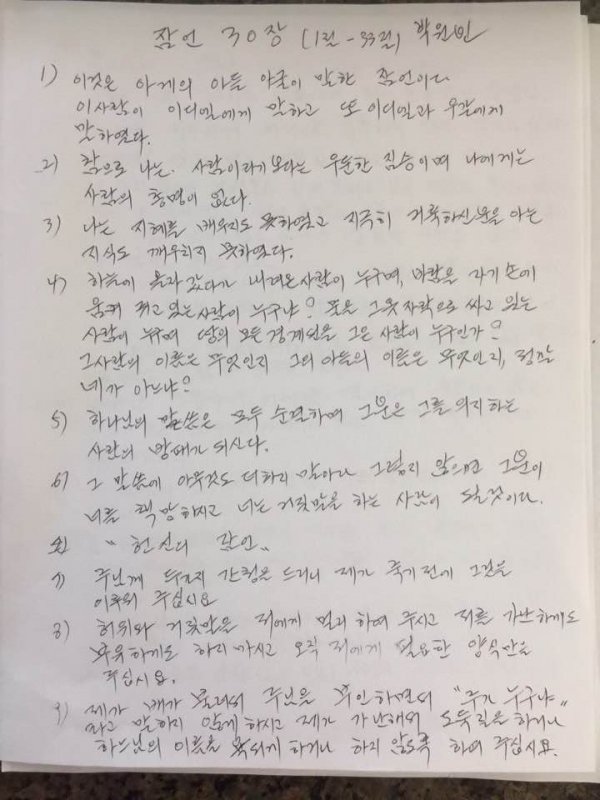 잠언 30장 (1절 - 33절) 박원빈
1) 이것은 아게의 아들 아굴이 말한 잠언이다.
이사람이 이디엘에게 말하고 또 이디엘과 우갈에게
말하였다.
2) 참으로 나는. 사람이라기 보다는 우둔한 짐승이며 나에게는
사람의 총명이 없다.
3) 나는 지혜를 배우지도 못하였고 지극히 거룩하신분을 아는
지식도 깨우치지 못하였다.
4) 하늘에 올라 갔다가 내려온 사람이 누구며, 바람을 자기 손에
움켜 쥐고 있는 사람이 누구냐? 물을 그 옷자락으로 싸고 있는
사람이 누구며 땅의 모든 경계선을 그은 사람이 누구인가?
그사람의 이름은 무엇인지 그의 아들의 이름은 무엇인지, 정말
네가 아느냐?
5) 하나님의 말씀은 모두 순결하며 그분은 그를 의지하는
사람의 방패가 되신다.
6) 그 말씀에 아무것도 더하지 말아라 그렇지 않으면 그분이
너를 책망하시고 너는 거짓말을 하는 사람이 될것이다.
"헌신의 잠언"
7) 주님께 두가지 간청을 드리니 제가 죽기전에 그것을
이루어 주십시요
8) 허위와 거짓말을 저에게 멀리 하여 주시고 저를 가난하게도
부유하게도 하지 마시고 오직 저에게 필요한 양식만을
주십시요.
9) 제가 배가 불러서 주님을 부인하면서 "주가 누구냐"
라고 말하지 않게 하시고 제가 가난해서 도둑질을 하거나
하느님의 이름을 욕되게 하거나 하지 않도록 하여 주십시요.